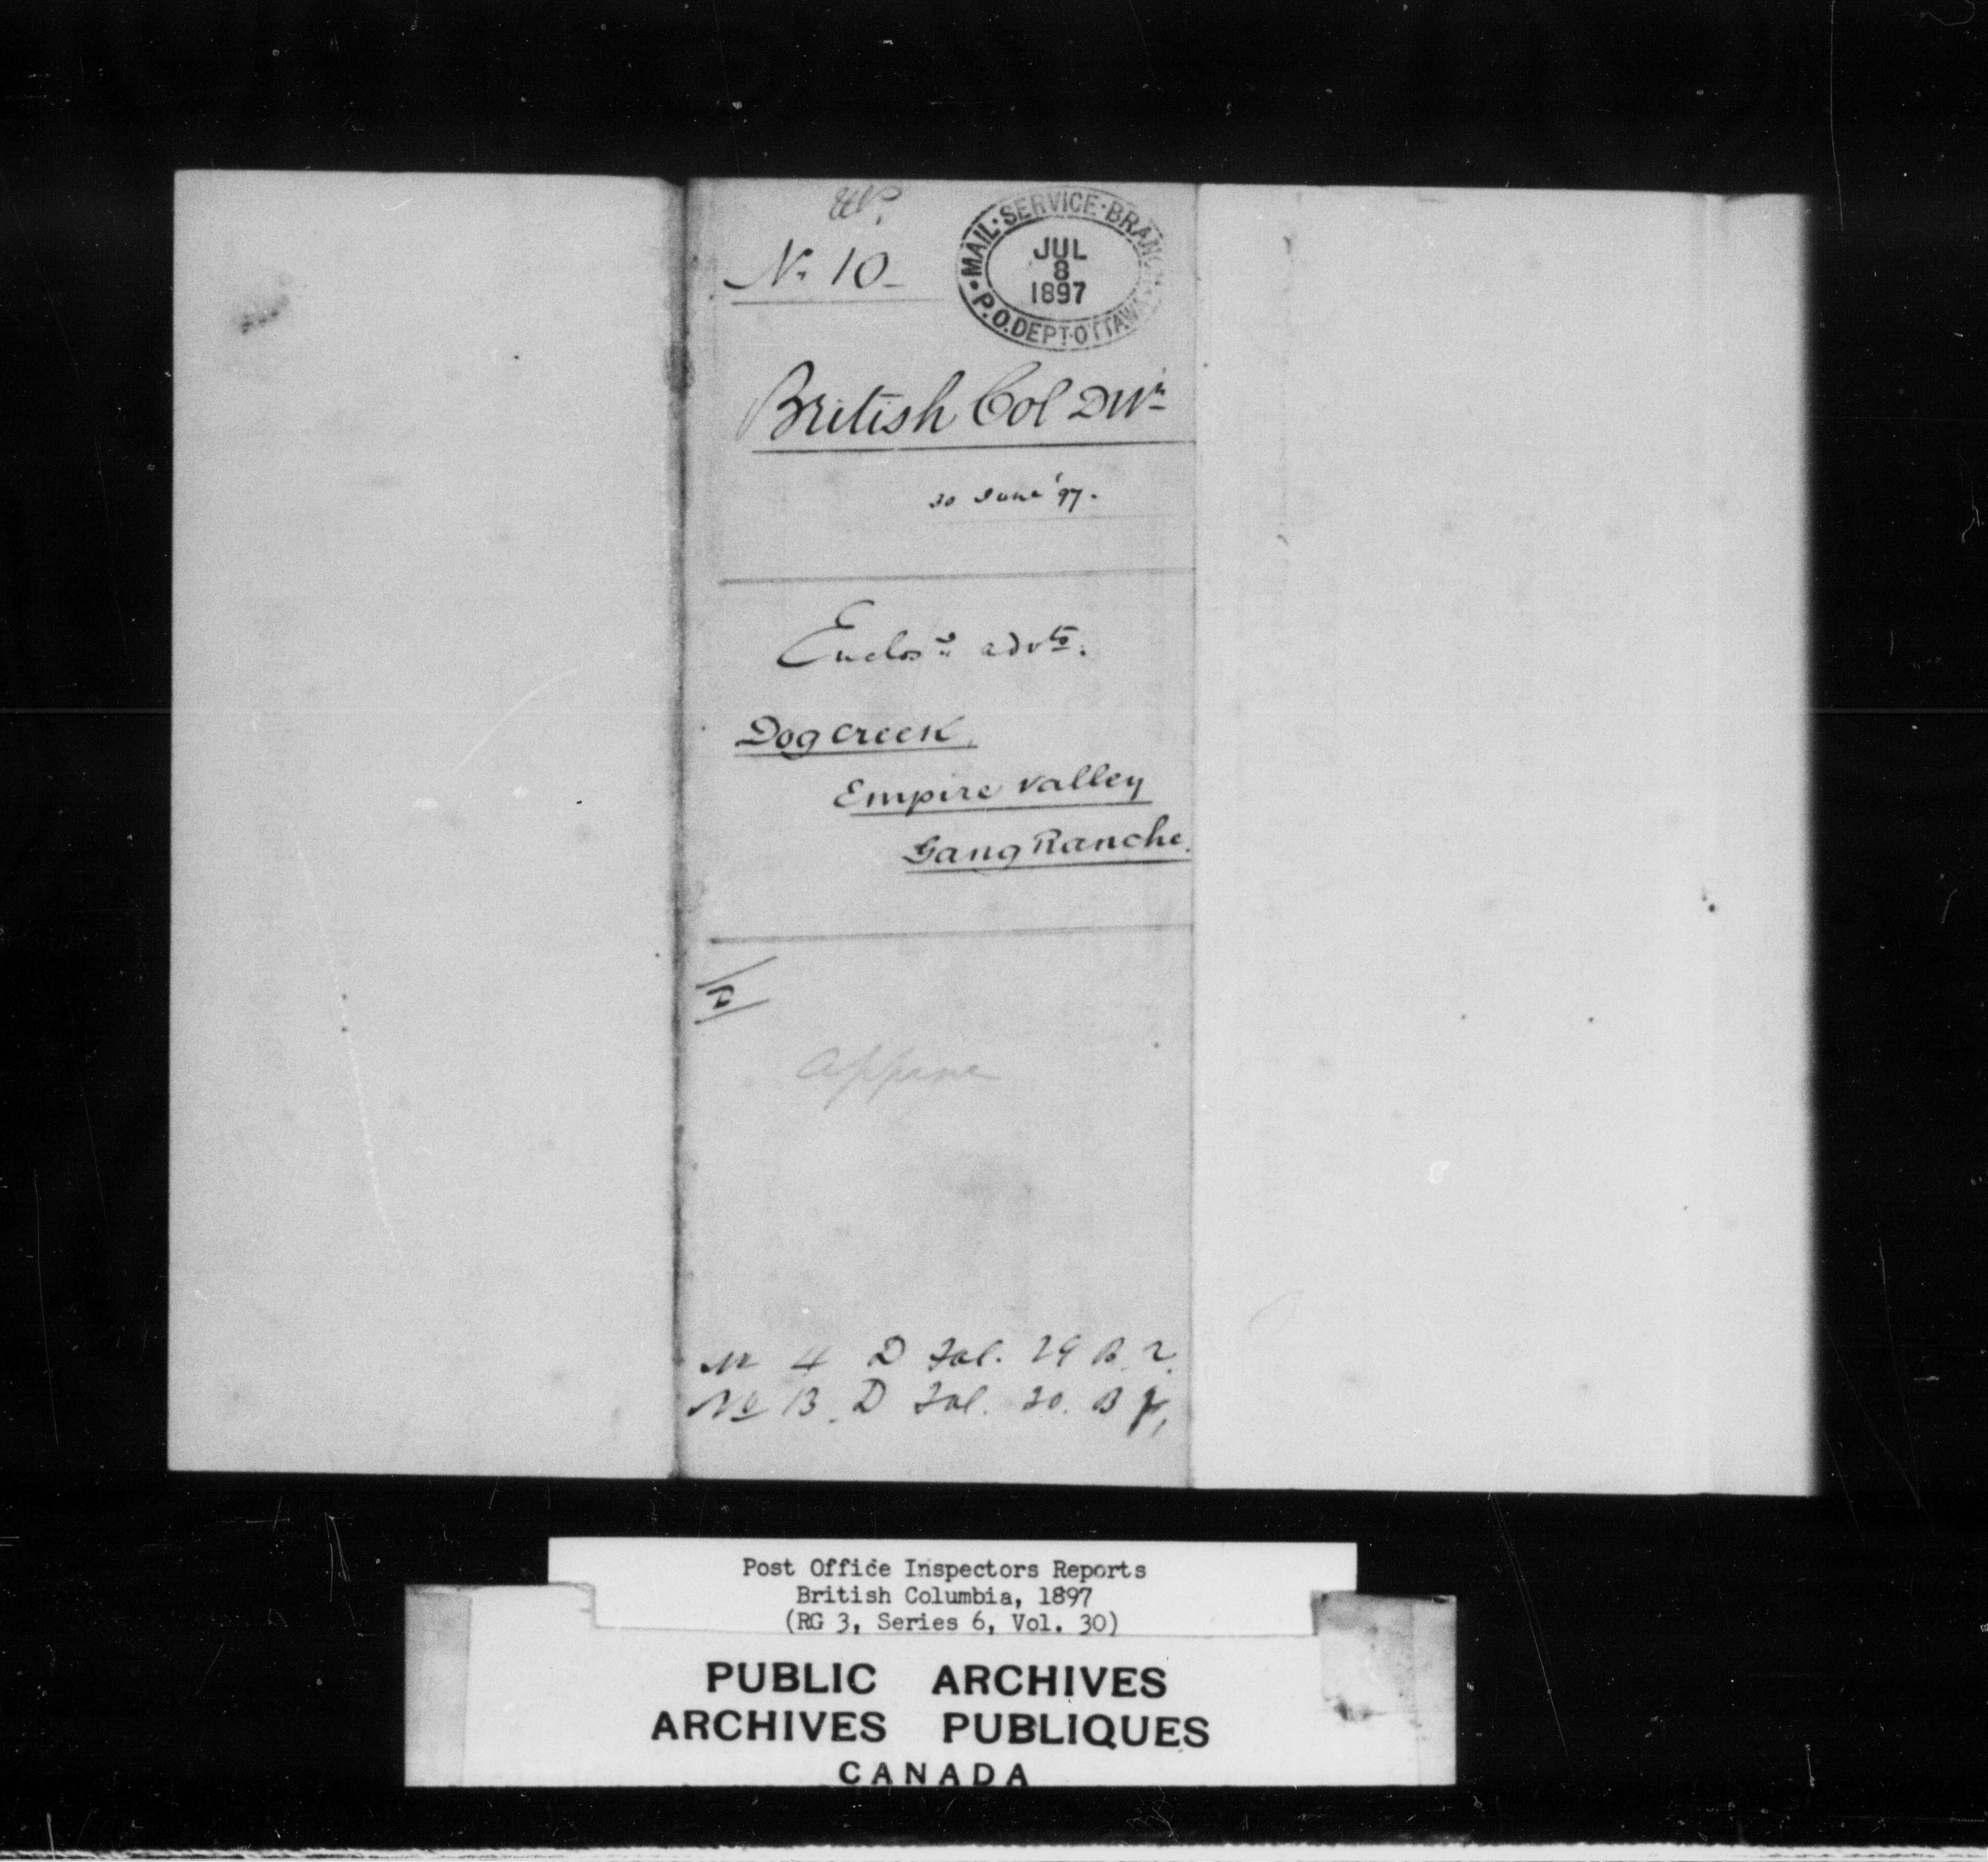 No. 10
MAIL·SERVICE·BRANCH
P.O. DEPT·OTTAWA
JUL
8
1897
British Col Divn
30 June '97.
Enclosg advts.
Dog Creek
Empire Valley
Gang Ranche.
No 4 D Fol. 29 B
No 13. D Fol. 30. B
Post Office Inspectors Reports
British Columbia, 1897
(RG 3, Series 6, Vol. 30)
PUBLIC ARCHIVES
ARCHIVES PUBLIQUES
CANADA